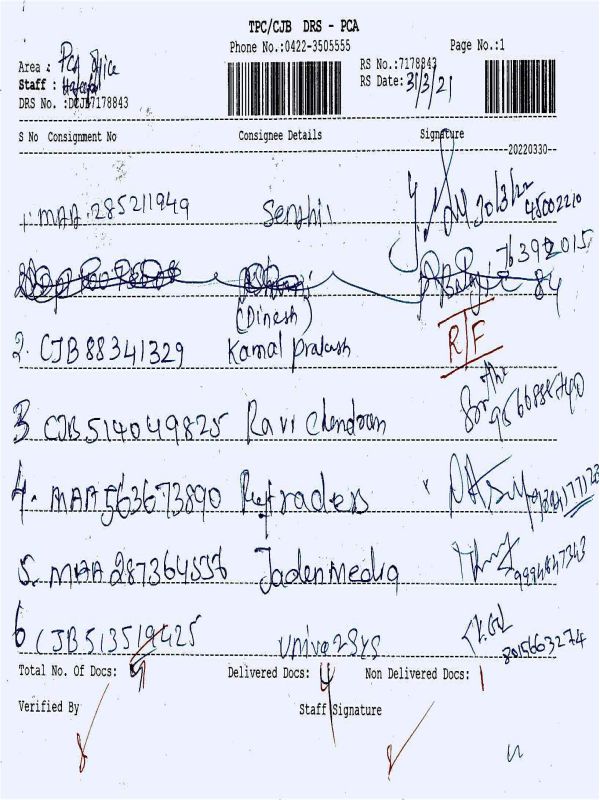 TPC/CJB DRS - PCA
Phone No.:0422-3505555 Page No.:1
Area : PCA office RS No.:7178843
Staff : RS Date: 31/3/21
DRS No. :DCJB7178843
S No Consignment No Consignee Details Signature
20220330
1. MAA 285211949 Senthil 30/3/22 45002210
7639 2015
84
(Dinesh)
2. CJB 88341329 Kamal prakash RTF
3 CJB 514049825 Ravi Chendran 9566884740
4. MAA 563673890 traders
5. MAA 287364556 Jaden Media 9994847343
6 CJB 513519425 Univarsys 8015663274
Total No. Of Docs: Delivered Docs: 4 Non Delivered Docs: 1
Verified By Staff Signature